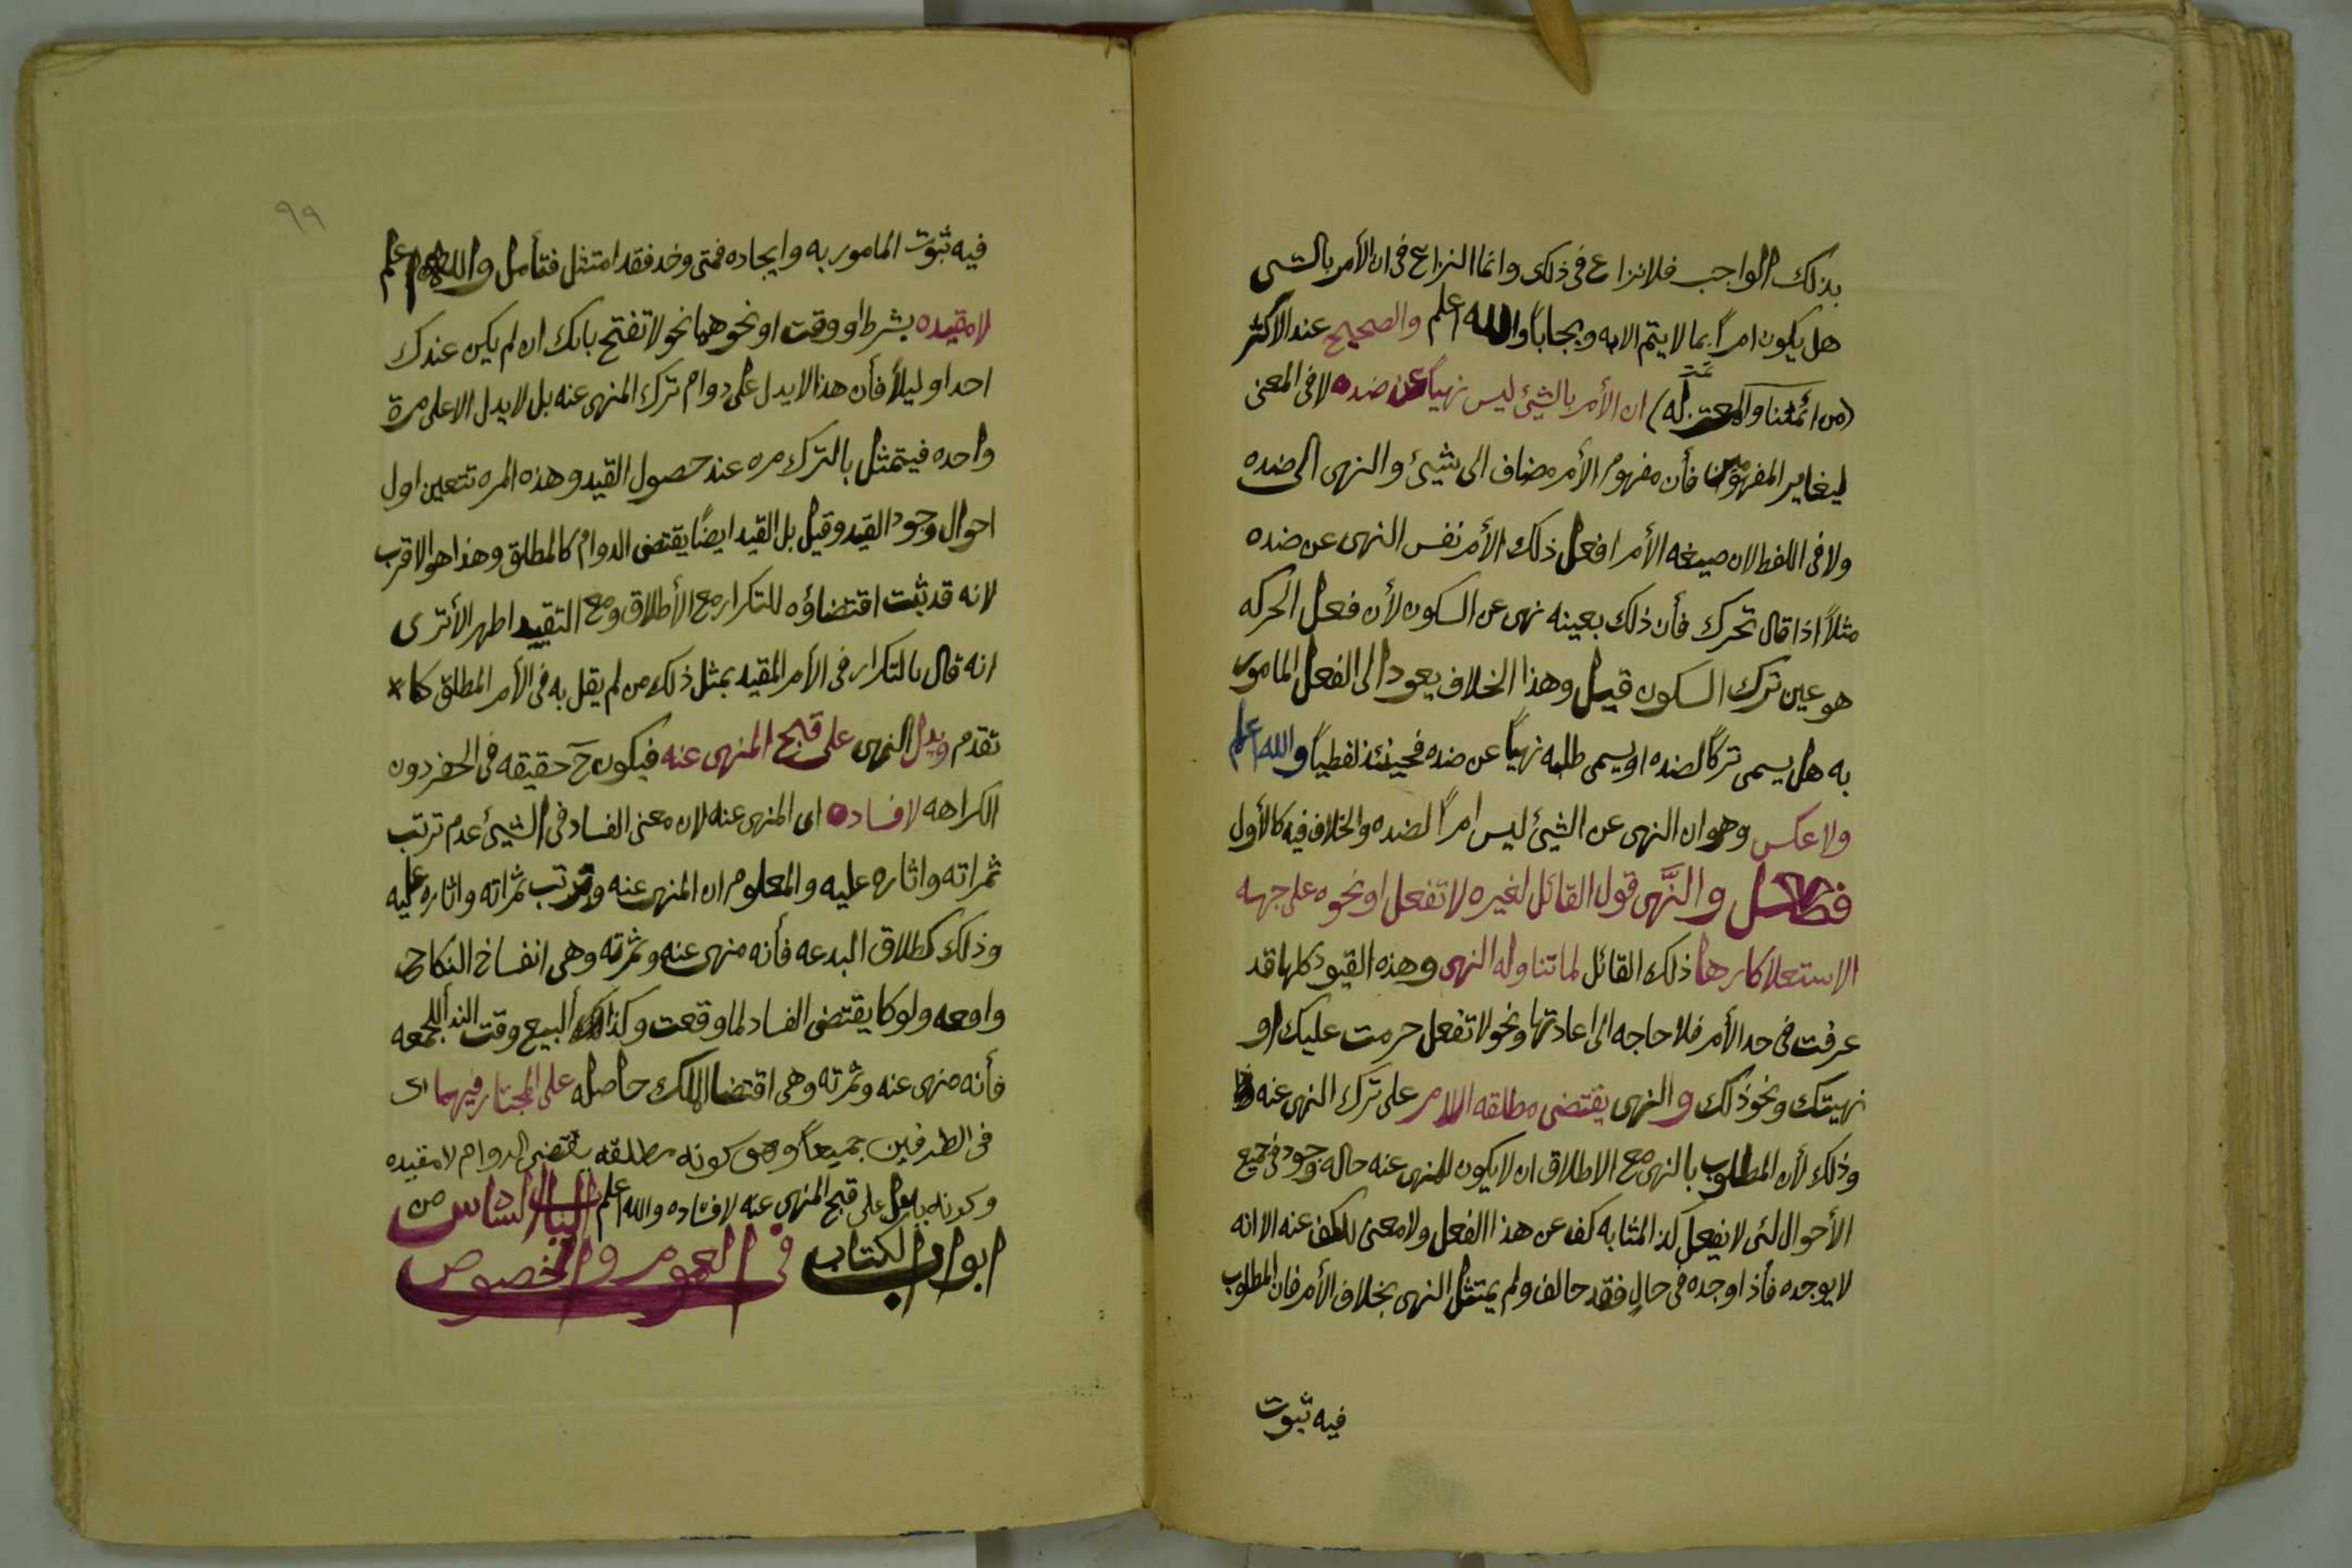 بذلك الواجب فلا نزاع فى ذلك وانما النزاع فى ان الأمر بالشى
هل يكون امراً بما لا يتم الا به ويجاباً والله اعلم والصحيح عند الاكثر
(من ائمتنا والمعتزله) ان الأمر بالشيئ ليس نهياً عن ضده لا فى المعنى
ليغاير المفهومين فأن مفهوم الأمر مضاف الى شيئ والنهى الى ضده
ولا فى اللفظ لان صيغه الأمر افعل ذلك الأمر نفس النهى عن ضده
مثلاً اذا قال تحرك فأن ذلك بعينه نهى عن السكون لأن فعل الحركه
هو عين ترك السكون قيل وهذا الخلاف يعود الى الفعل المامور
به هل يسمى تركاً لضده او يسمى طلبه نهياً عن ضده فحينئذ لفظياً والله اعلم
ولا عكس وهو ان النهى عن الشيئ ليس امراً لضده والخلاف فيه كالأول
فصل والنَّهى قول القائل لغيره لا تفعل او نحوه على جهه
الاستعلا كارها ذلك القائل لما تناوله النهى وهذه القيود كلها قد
عرفت فى حد الأمر فلا حاجه الى اعادتها ونحو لا تفعل حرمت عليك او
نهيتك ونحو ذلك والنهى يقتضى مطلقه على ترك النهى عنه
وذلك لأن المطلوب بالنهى مع الاطلاق ان لا يكون للمنهى عنه حاله وجود فى جميع
الأحوال لئى لا يفعل كذ المثابه كف عن هذا الفعل ولا معنى للكف عنه الا انه
لا يوجده فأذا وجده فى حالٍ فقد حالف ولم يمتثل النهى بخلاف الأمر فان المطلوب
فيه ثبوت
٩٩
فيه ثبوت المامور به وايجاده فمتى وخد فقد امتثل فتأمل والله اعلم
لا مقيده بشرط او وقت او نحوهما نحو لا تفتح بابك ان لم يكن عندك
احد او ليلاً فأن هذا لا يدل على دوام ترك المنهى عنه بل لا يدل الا على مرة
واحده فيتمثل بالترك مره عند حصول القيد وهذه المره تتعين اول
احوال وجود القيد وقيل بل القيد ايضاً يقتضى الدوام كالمطلق وهذا هو الاقرب
لانه قد ثبت اقتضاؤه للتكرار مع الأطلاق ومع التقييد اظهر الأترى
انه قال بالتكرار فى الأمر المقيد بمثل ذلك من لم يقل به فى الأمر المطلق كما
تقدم ويدل النهى على قبح المنهى عنه فيكون حَ حقيقه فى الحضر دون
الكراهه لا فساده اى المنهى عنه لان معنى الفساد فى الشيئ عدم ترتب
ثمراته واثاره عليه والمعلوم ان المنهى عنه وترتب ثمراته واثاره عليه
وذلك كطلاق البدعه فأنه منهى عنه وثمرته وهى انفساخ النكاح
واقعه ولو كا يقتضى الفساد لما وقعت وكذلك البيع وقت الندأ للجمعه
فأنه منهى عنه وثمرته وهى اقتضا الملك حاصله على المختار فيهما اى
فى الطرفين جميعاً وهو كونه مطلقه يقتضى الدوام لا مقيده
وكونه يدل على قبح المنهى عنه لا فساده والله اعلم الباب السادس من
ابواب الكتاب فى العموم والخصوص